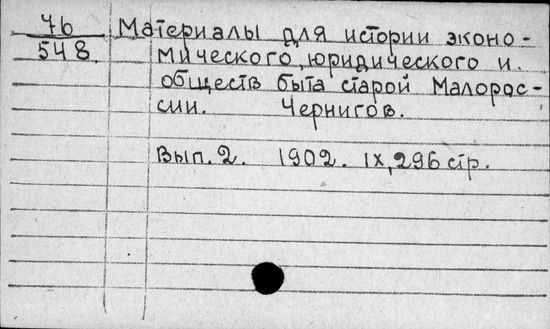 76 Материалы для истории эконо-
548. мического, юридического и.
обществ быта старой Малорос-
сии. Чернигов.
Вып. 2. 1902. IX, 296 стр.